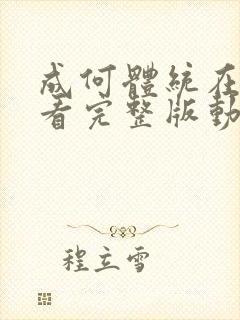 成何體統在
看完整版動
程立雪